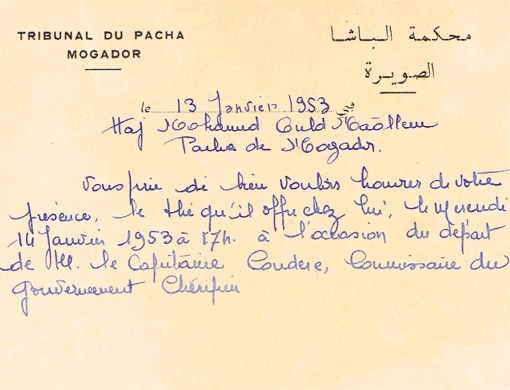 TRIBUNAL DU PACHA
MOGADOR
محكمة الباشا
الصويرة
le 13 Janvier 1953 في
Haj Mohamed Ould Maâllem
Pacha de Mogador.
Vous prie de bien vouloir honorer de votre
présence, le thé qu'il offre chez lui, le Mercredi
14 Janvier 1953 à 17h. à l'occasion du départ
de M. le Capitaine Coudere, Commissaire du
Gouvernement Chérifien